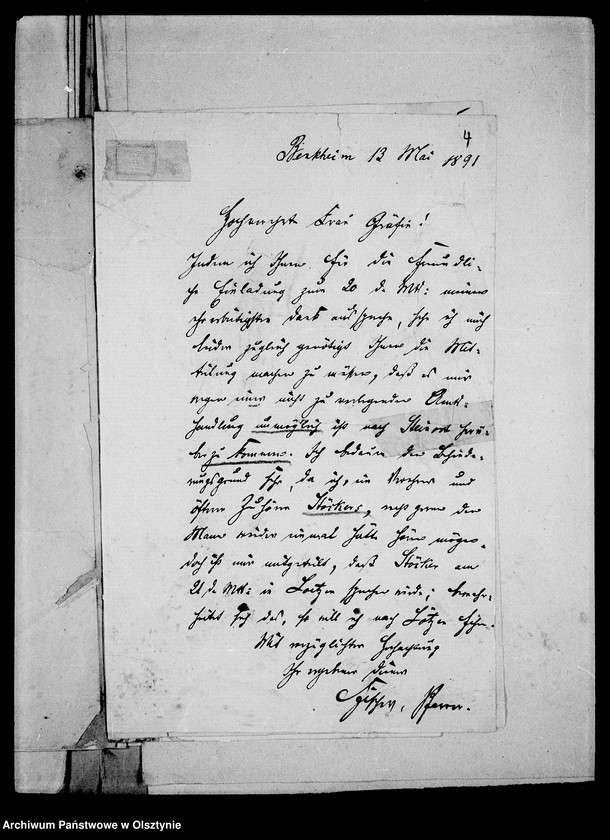 4
Benkheim 13 Mai 1891
Hochverehrte Frau Gräfin!
Indem ich Ihnen für die freundli-
che Einladung zum 20 d. Mts: meinen
ehrerbietigsten Dank ausspreche, sehe ich mich
leider zugleich genötigt Ihnen die Mit-
teilung machen zu müssen, daß es mir
wegen einer nicht zu verlegenden Amts-
handlung unmöglich ist nach Steinort herü-
ber zu kommen. Ich bedaure den Behinde-
rungsgrund sehr, da ich, ein Verehrer und
öfterer Zuhörer Stöckers, recht gern den
Mann wieder einmal hätte hören mögen.
doch ist mir mitgeteilt, daß Stöcker am
21 d. Mts: in Loetzen sprechen würde; bewahr-
heitet sich das, so will ich nach Lötzen fahren.
Mit vorzüglichster Hochachtung
Ihr ergebener Diener
Pfarrer.
Archiwum Państwowe w Olsztynie